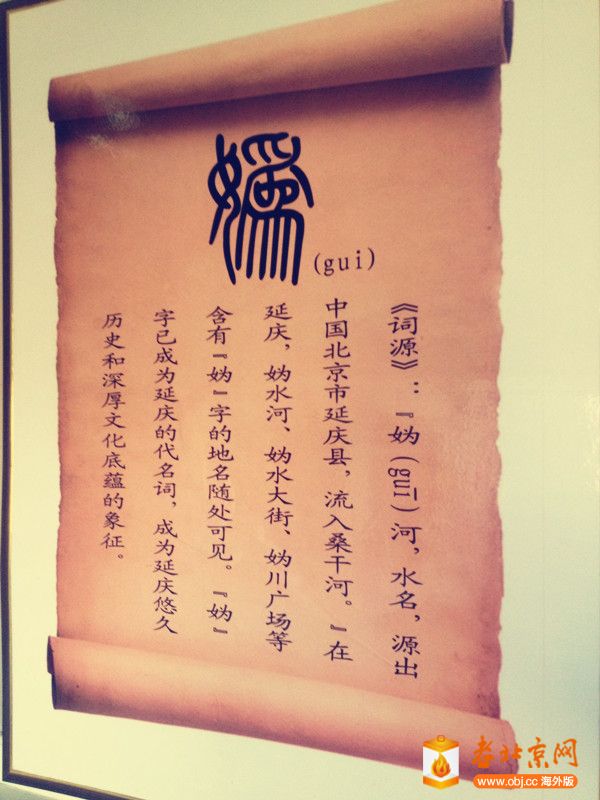 媯
(gui)
《词源》:『妫(guī)河,水名,源出
中国北京市延庆县,流入桑干河。』在
延庆,妫水河、妫水大街、妫川广场等
含有『妫』字的地名随处可见。『妫』
字已成为延庆的代名词,成为延庆悠久
历史和深厚文化底蕴的象征。
老北京网
www.obj.cc 海外版